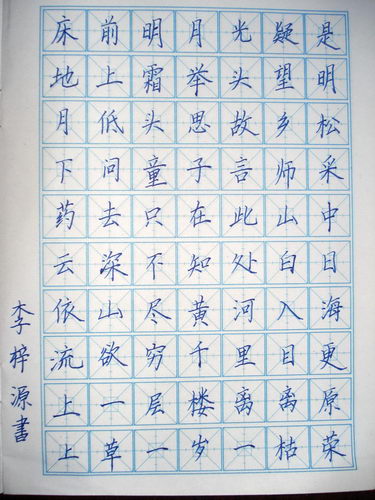 床前明月光疑是
地上霜举头望明
月低头思故乡松
下问童子言师采
药去只在此山中
云深不知处白日
依山尽黄河入海
流欲穷千里目更
上一层楼离离原
上草一岁一枯荣
李梓源書